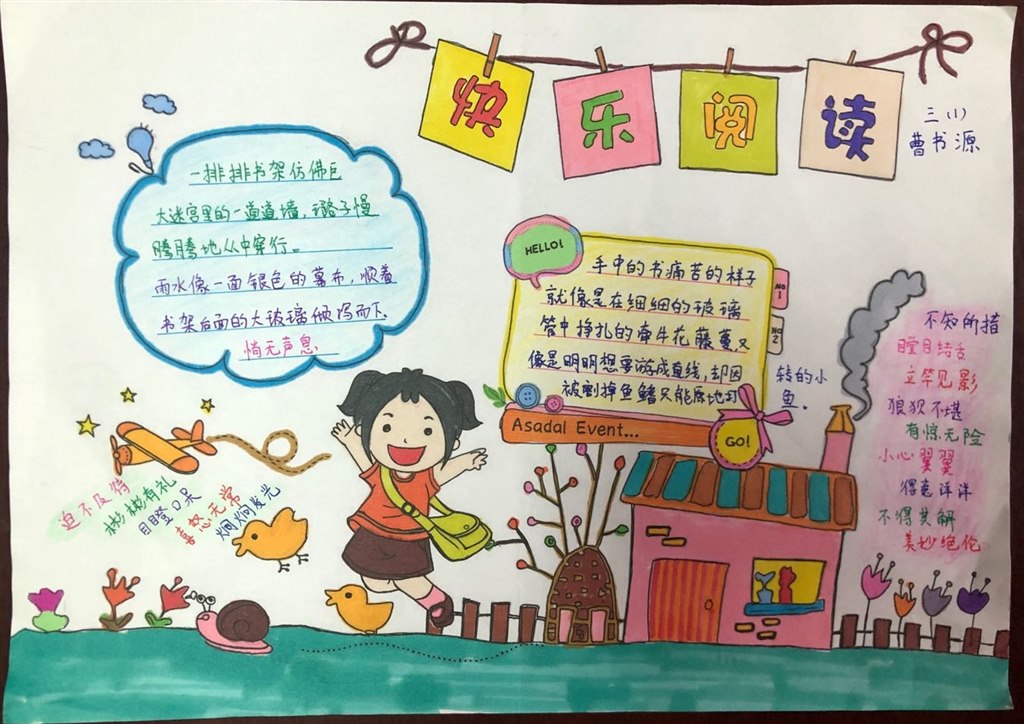 快乐阅读
三(1)
曹书源
一排排书架仿佛巨
大迷宫里的一道道墙,璐子慢
腾腾地从中穿行。
雨水像一面银色的幕布,顺着
书架后面的大玻璃倾泻而下。
悄无声息
HELLO!
手中的书痛苦的样子
就像是在细细的玻璃
管中挣扎的牵牛花藤蔓,又
像是明明想要游成直线,却因
被割掉鱼鳍只能原地打
转的小
鱼。
NO 1
NO 2
Asadal Event...
GO!
不知所措
瞠目结舌
立竿见影
狼狈不堪
有惊无险
小心翼翼
得意洋洋
不得其解
美妙绝伦
迫不及待
彬彬有礼
目瞪口呆
喜怒无常
炯炯发光